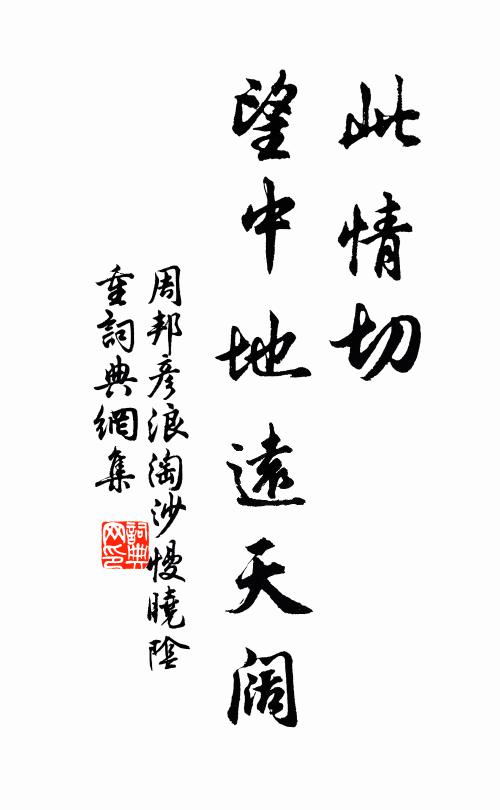 此情切
望中地遠天闊
周邦彥浪淘沙慢曉陰
重詞典網集
詞典
网印